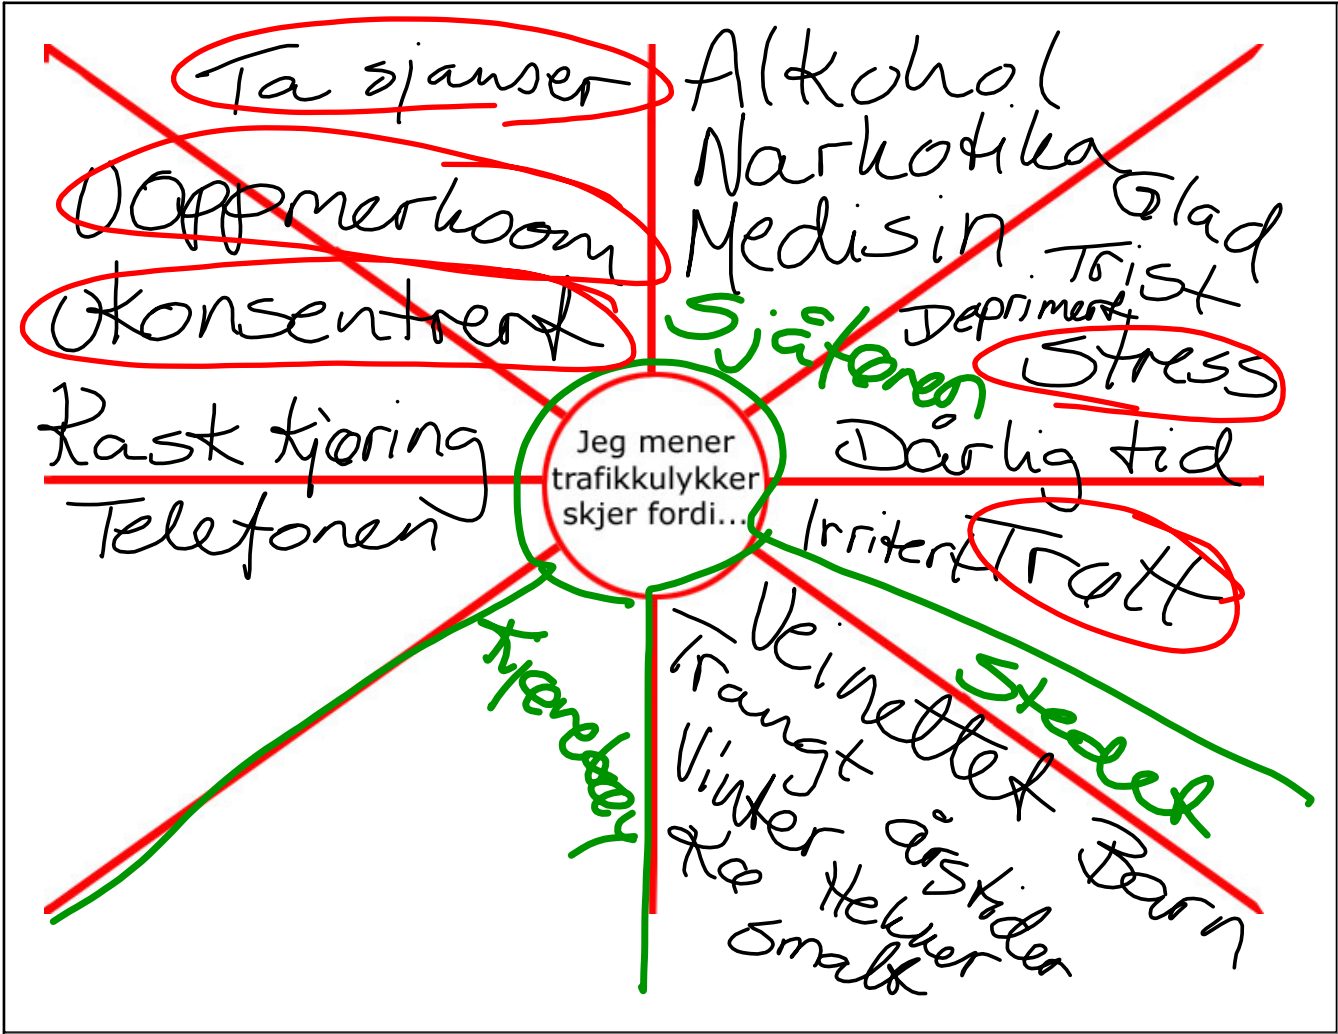 Ta sjanser
Uoppmerksom
Ukonsentrert
Rask kjøring
Telefonen
Alkohol
Narkotika
Medisin
Sjåføren
Glad
Trist
Deprimert
Stress
Dårlig tid
Irritert
Trøtt
Jeg mener
trafikkulykker
skjer fordi...
Kjøretøy
Stedet
Veinettet
Trangt
Vinter
Kø
årstider
Hekker
Smalt
Barn